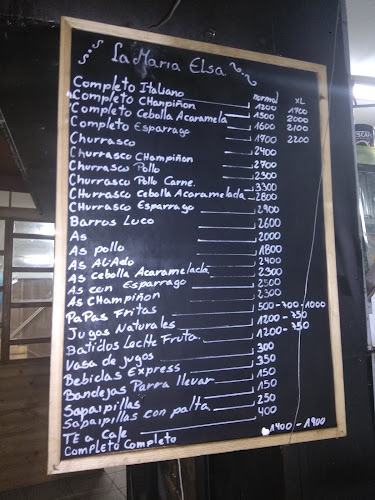 La Maria Elsa
normal XL
Completo Italiano 1200 1700
Completo CHanpiñon 1500 2000
Completo Ceballa Acaramela 1600 2100
Completo Esparrago 1700 2200
Churrasco 2400
Churrasco CHampiñon 2700
Churrasco Pollo 2300
Churrasco Pollo Carne. 3300
Churrasco Ceballa Acaramelada 2800
CHurrasco Esparrago 2900
Barros Luco 2600
As 2000
As pollo 1800
As Al-Ado 2400
As Ceballa Acaramelada 2300
As con Esparrago 2500
As CHampiñon 2300
PaPas Fritas 500-700-1000
Jugos Naturales 1200-750
Batidos LecHe Fruta. 1200-750
Vasa de jugos 300
Bebidas Express 350
Bandejas Parra llevar 150
Sapaipillas 150
Sapaipillas con palta 250
TE a Cafe 400
Completo Completo 1400-1900